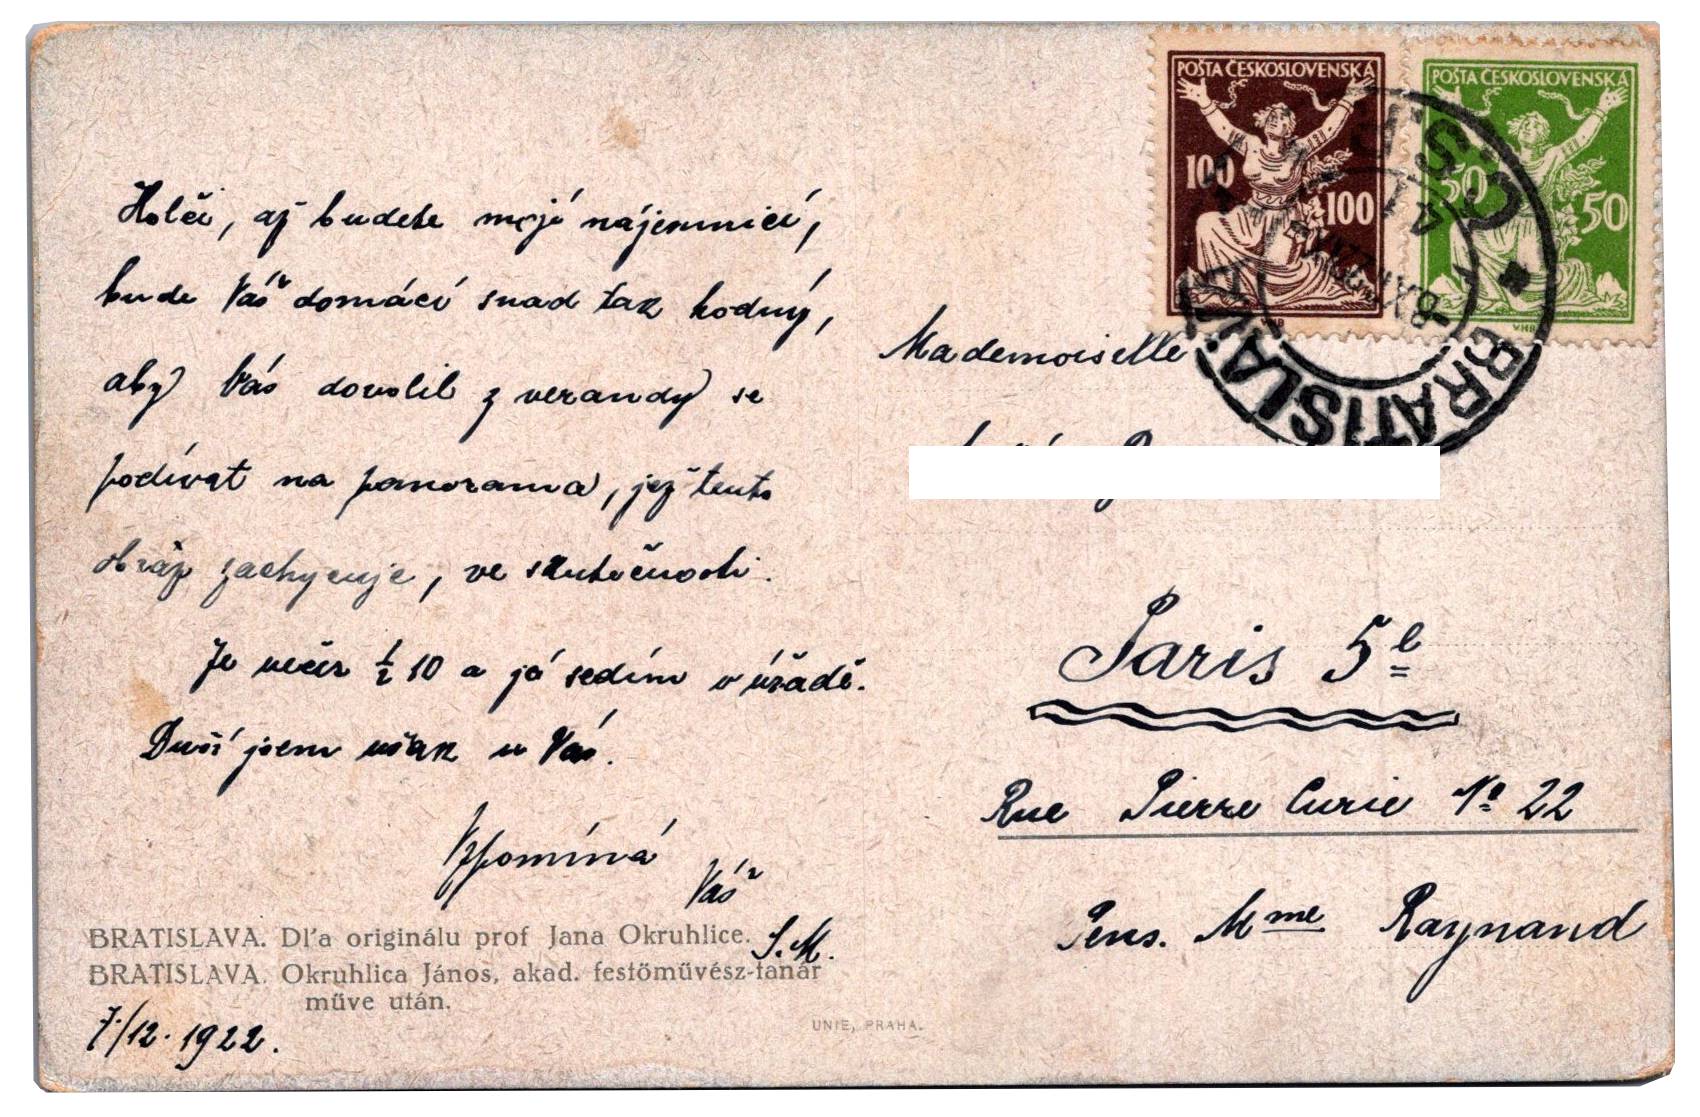 Holči, až budete mojí nájemnicí,
bude Váš domácí snad tak hodný,
aby Vás dovolil z verandy se
podívat na panorama, jež tento
obraz zachycuje, ve skutečnosti.
Je večer ½ 10 a já sedím v úřadě.
Duší jsem však u Vás.
Vzpomíná
Váš
S.M.
BRATISLAVA. Dľa originálu prof Jana Okruhlice.
BRATISLAVA. Okruhlica János, akad. festőművész-tanár
műve után.
7./12. 1922.
UNIE, PRAHA.
POŠTA ČESKOSLOVENSKÁ
100
100
POŠTA ČESKOSLOVENSKÁ
50
50
V.HB
BRATISLAVA
Č.S.P.
Mademoiselle
Paris 5e
Rue Pierre Curie No 22
Pens. Mme Raynand